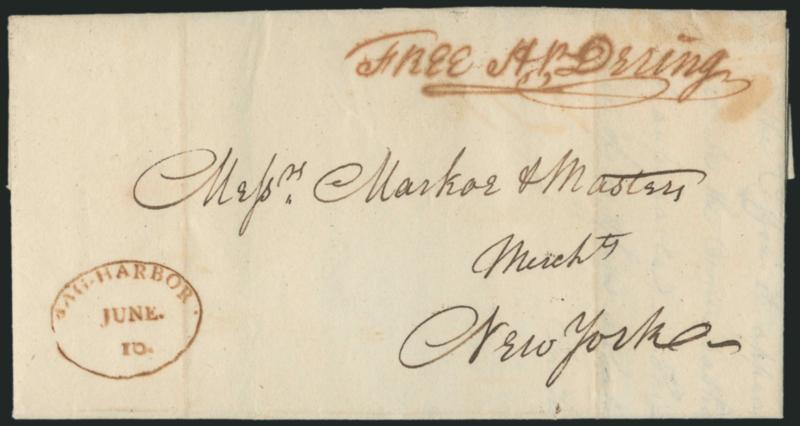 FREE H,P, Dering
Messrs. Markoe & Masters
Merchts
New York
SAG-HARBOR.
JUNE.
10.